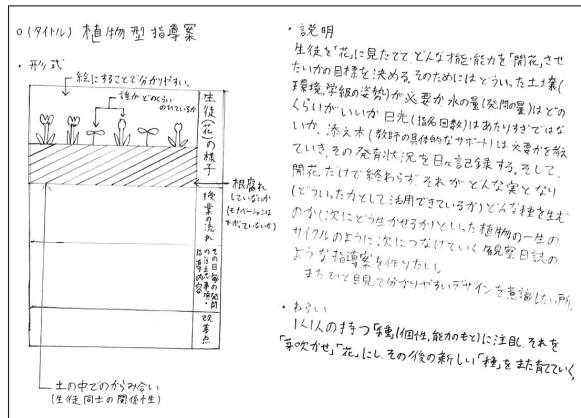 ○(タイトル) 植物型指導案
・形式
絵にすることで分かりやすい。
誰がどのくらい
のびているか
生徒(花)の様子
根腐れ
していないか
(モチベーションは
下がっていないか)
授業の流れ
その日毎の発問
の注意事項・
指導内容
改善点
土の中でのからみ合い
(生徒同士の関係性)
・説明
生徒を「花」に見たてて、どんな才能・能力を「開花」させ
たいかの目標を決める。そのためにはどういった土壌(
環境、学級の姿勢)が必要か 水の量(発問の量)はどの
くらいがいいか 日光(指名回数)はあたりすぎではな
いか、添え木(教師の具体的なサポート)は必要かを考え
ていき、その発育状況を日々記録する。そして、
開花だけで終わらず、それがどんな実となり
(どういった力として活用できているか)どんな種を生む
のか(次にどう生かせるか)といった植物の一生の
サイクルのように次につなげていく観察日誌の
ような指導案を作りたい。
またひと目見て分かりやすいデザインを意識したい所。
・ねらい
1人1人の持つ「種」(個性,能力のもと)に注目し、それを
「芽吹かせ」「花」にし、その後の新しい「種」をまた育てていく